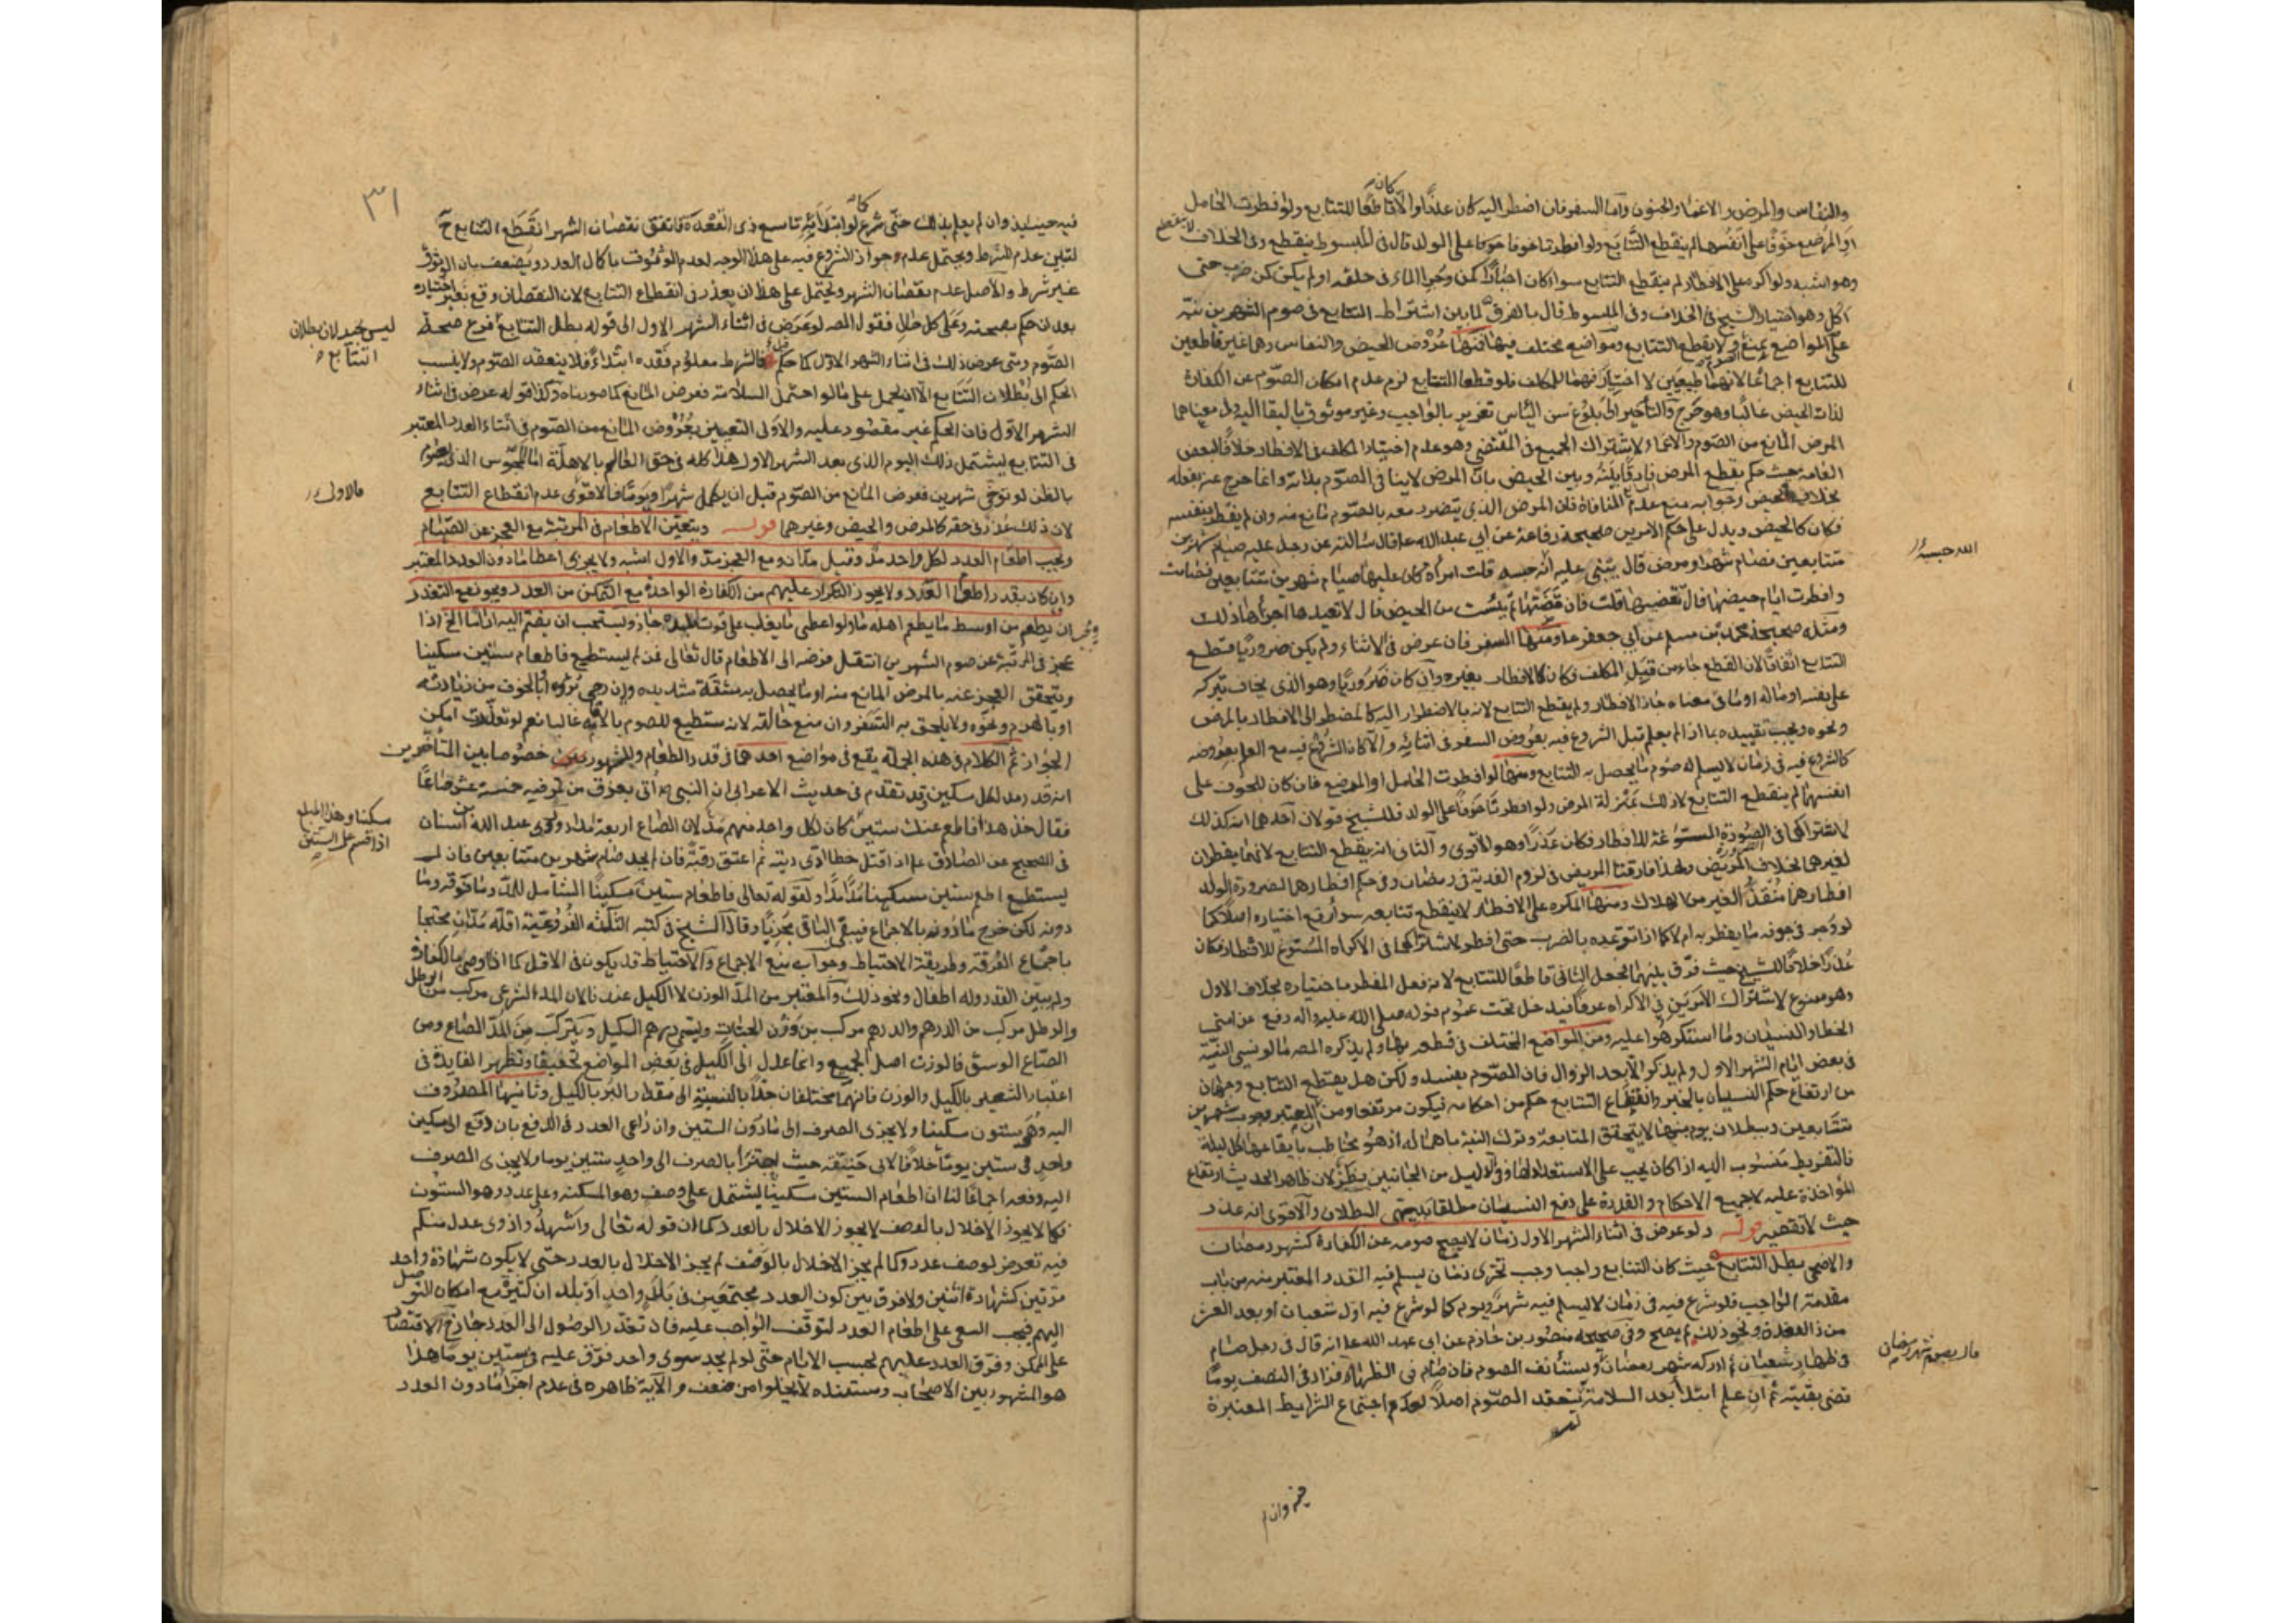 والنفاس والمرض والاغماء والجنون واما السفر فان اضطر اليه كان عذرا والا كان قاطعا للتتابع ولو افطرت الحامل
او المرضع خوفا على انفسهما لم ينقطع التتابع ولو افطرتا خوفا على الولد قال في المبسوط ينقطع وفي الخلاف لا ينقطع
وهو اشبه ولو اكره على الافطار لم ينقطع التتابع سواء كان اجبارا كمن وجر الماء في حلقه او لم يكن كمن ضرب حتى
اكل وهو اختيار الشيخ في الخلاف وفي المبسوط قال بالفرق لما بين اشتراط التتابع في صوم الشهرين نبّه
على المواضع
للتتابع اجماعا لانهما طبيعيين لا اختيار فيهما للمكلف فلو قطعا التتابع لزم عدم امكان الصوم عن الكفارة
لذات الحيض غالبا وهو حرج والتأخير الى بلوغ سن اليأس تغرير بالواجب وغير موثوق بالبقا اليه وفي معناهما
المرض المانع من الصوم والاغماء لاشتراك الجميع في المقتضي وهو عدم اختيار المكلف في الافطار خلافا لبعض
العامة حيث حكم بقطع المرض فارقا بينه وبين الحيض بان المرض لا ينافي الصوم بذاته وانما خرج عنه بفعله
بخلاف الحيض وجوابه منع عدم المنافاة فان المرض الذي يتضرر معه بالصوم مانع منه وان لم يفطر بنفسه
فكان كالحيض ويدل على حكم الامرين صحيحة رفاعة عن ابي عبد الله ع قال سالته عن رجل عليه صيام شهرين
متتابعين فصام شهرا ومرض قال يبني عليه الله حبسه قلت امراة كان عليها صيام شهرين متتابعين فصامت
وافطرت ايام حيضها قال تقضيها قلت فان قضتها ثم يئست من الحيض قال لا تعيدها اجزأها ذلك
ومثله صحيحة محمد بن مسلم عن ابي جعفر ع ومنها السفر فان عرض في الاثناء ولم يكن ضروريا قطع
التتابع اتفاقا لان القطع جاء من قبل المكلف فكان كالافطار بغيره وان كان ضروريا وهو الذي يخاف بتركه
على نفسه او ماله او ما في معناه جاز الافطار ولم يقطع التتابع لانه بالاضطرار اليه كالمضطر الى الافطار بالمرض
ونحوه ويجب تقييده بما اذا لم يعلم قبل الشروع فيه بعروض السفر في اثنائه والا كان الشروع فيه مع العلم بعروضه
كالشروع فيه في زمان لا يسلم له صوم ما يحصل به التتابع ومنها لو افطرت الحامل او المرضع فان كان للخوف على
انفسهما لم ينقطع التتابع لان ذلك بمنزلة المرض ولو افطرتا خوفا على الولد فللشيخ قولان احدهما انه كذلك
لاشتراكهما في الضرورة المسوغة للافطار فكان عذرا وهو الاقوى والثاني انه يقطع التتابع لانهما يفطران
لغيرهما بخلاف المريض ولهذا فارقتا المريض في لزوم الفدية في رمضان وفي حكم افطارهما لضرورة الولد
افطارهما منقذ الغير من الهلاك ومنها المكره على الافطار لا ينقطع تتابعه سواء رفع اختياره اصلا كما
لو وجر في جوفه ما يفطر به ام لا كما اذا توعده بالضرب حتى افطر لاشتراكهما في الاكراه المسوغ للافطار فكان
عذرا خلافا للشيخ حيث فرق بينهما فجعل الثاني قاطعا للتتابع لانه فعل المفطر باختياره بخلاف الاول
وهو ممنوع لاشتراك الامرين في الاكراه عرفا فيدخل تحت عموم قوله صلى الله عليه واله رفع عن امتي
الخطا والنسيان وما استكرهوا عليه ومن المواضع المختلف في قطعه بها ولم يذكره المصـ ما لو نسي النية
في بعض ايام الشهر الاول ولم يذكر الا بعد الزوال فان الصوم يفسد ولكن هل يقطع التتابع وجهان
من ارتفاع حكم النسيان بالخبر وانقطاع التتابع حكم من احكامه فيكون مرتفعا ومن ان المعتبر وجوب شهرين
متتابعين وببطلان يوم منها لا يتحقق المتابعة وترك النية باهماله اذ هو مخاطب بايقاعها كل ليلة
فالتفريط منسوب اليه اذا كان يجب عليه الاستعداد لها وفي الدليل من الجانبين نظر لان ظاهر الحديث ارتفاع
المؤاخذة عليه لا جميع الاحكام والقدرة على دفع النسيان مطلقا
حيث لا تقصير قوله ولو عرض في اثناء الشهر الاول زمان لا يصح صومه عن الكفارة كشهر رمضان
والاضحى بطل التتابع حيث كان التتابع واجبا وجب تحري زمان يسلم فيه القدر المعتبر منه من باب
مقدمة الواجب فلو شرع فيه في زمان لا يسلم فيه شهر ويوم كما لو شرع فيه اول شعبان او بعد العشر
من ذي القعدة ونحو ذلك لم يصح وفي صحيحة منصور بن حازم عن ابي عبد الله ع انه قال في رجل صام
في ظهار شعبان ثم ادركه شهر رمضان ويستأنف الصوم فان صام في الظهار فزاد في النصف يوما
قضى بقيته ثم ان علم ابتداء بعد السلامة لم ينعقد الصوم اصلا لعدم اجتماع الشرايط المعتبرة
الله حبسه
قال يصوم شهر رمضان
فيه وان لم
٣١
فيه حينئذ وان لم يعلم بذلك حتى شرع كما لو ابتدأ به تاسع ذي القعدة فاتفق نقصان الشهر انقطع التتابع ح
لتبين عدم الشرط ويحتمل عدم جواز الشروع فيه على هذا الوجه لعدم الوثوق باكمال العدد ويضعف بان الوثوق
غير شرط والاصل عدم نقصان الشهر ويحتمل على هذا ان يعذر في انقطاع التتابع لان النقصان وقع بغير اختياره
بعد ان حكم بصحته وعلى كل حال فقول المصـ لو عرض في اثناء الشهر الاول الى قوله بطل التتابع فرع صحة
الصوم ومتى عرض ذلك في اثناء الشهر الاول كما حكم فالشرط معلوم فقده ابتداء فلا ينعقد الصوم ولا ينسب
الحكم الى بطلان التتابع الا ان يحمل على ما لو احتمل السلامة فعرض المانع كما صورناه وكذا قوله عرض في اثناء
الشهر الاول فان الحكم غير مقصود عليه والاولى التعبير بعروض المانع من الصوم في اثناء العدد المعتبر
في التتابع ليشتمل ذلك اليوم الذي بعد الشهر الاول هذا كله في حق العالم بالاهلة اما المحبوس الذي يصوم
بالظن لو توخى شهرين فعرض المانع من الصوم قبل ان يكمل شهرا ويوما فالاقوى عدم انقطاع التتابع
لان ذلك عذر في حقه كالمرض والحيض وغيرهما قوله ويتعين الاطعام في المرتبة مع العجز عن الصيام
ويجب اطعام العدد لكل واحد مد وقيل مدان ومع العجز مد والاول اشبه ولا يجزي اعطا ما دون العدد المعتبر
وان كان بقدر اطعام العدد ولا يجوز التكرار عليهم من الكفارة الواحدة مع التمكن من العدد ويجوز مع التعذر
ويجب ان يطعم من اوسط ما يطعم اهله ولو اعطى ما يغلب على قوت البلد جاز ويستحب ان يضم اليه اداما الخ اذا
عجز في المرتبة عن صوم الشهرين انتقل فرضه الى الاطعام قال تعالى فمن لم يستطيع فاطعام ستين مسكينا
ويتحقق العجز عنه بالمرض المانع منه او ما يحصل به مشقة شديده وان رجى برؤه او بالخوف من زيادته
او بالهرم ونحوه ولا يلحق به السفر وان منع حالته لانه مستطيع للصوم بالاقامة غالبا نعم لو تعذرت امكن
الجواز ثم الكلام في هذه الجملة يقع في مواضع احدها في قدر الطعام والمشهور خصوصا بين المتأخرين
انه قدر مد لكل مسكين وقد تقدم في حديث الاعرابي ان النبي ص أتي بعرق من تمر فيه خمسة عشر صاعا
فقال خذ هذا فاطعم عنك ستين مسكينا كان لكل واحد منهم مد لان الصاع اربعة امداد وروى عبد الله بن سنان
في الصحيح عن الصادق ع اذا قتل خطا ادى ديته ثم اعتق رقبة فان لم يجد صام شهرين متتابعين فان لم
يستطيع اطعم ستين مسكينا مدا مدا ولقوله تعالى فاطعام ستين مسكينا الشامل للمد وما فوقه وما
دونه لكن خرج ما دونه بالاجماع فيبقى الباقي مجزيا وقال الشيخ في كتبه الثلاثة الفروعية اقله مدان محتجا
باجماع الفرقة وطريقة الاحتياط وجوابه منع الاجماع والاحتياط قد يكون في الاقل كما اذا وصى بالكفارة
ولم يبين القدر وله اطفال ونحو ذلك والمعتبر من المد الوزن لا الكيل عندنا لان المد الشرعي مركب من الرطل
والرطل مركب من الدرهم والدرهم مركب من وزن الحبات ويسمى درهم الكيل ويتركب من المد الصاع ومن
الصاع الوسق فالوزن اصل الجميع وانما عدل الى الكيل في بعض المواضع تخفيفا وتظهر الفايدة في
اعتبار الشعير بالكيل والوزن فانهما مختلفان جدا بالنسبة الى مقدار البر بالكيل وثانيها المصروف
اليه وهو ستون مسكينا ولا يجزى الصرف الى ما دون الستين وان راعى العدد في الدفع بان دفع الى مسكين
واحد في ستين يوما خلافا لابي حنيفة حيث اجتزأ بالصرف الى واحد ستين يوما ولا يجزى المصرف
اليه دفعة اجماعا لنا ان اطعام الستين مسكينا يشتمل على وصف وهو المسكنة وعلى عدد وهو الستون
فكما لا يجوز الاخلال بالوصف لا يجوز الاخلال بالعدد كما ان قوله تعالى واشهدوا ذوى عدل منكم
فيه تعرض لوصف عدد وكما لم يجز الاخلال بالوصف لم يجز الاخلال بالعدد حتى لا يكون شهادة واحد
مرتين كشهادة اثنين ولا فرق بين كون العدد مجتمعين في بلد واحد او بلدان كثيرة مع امكان التوصل
اليهم فيجب السعي على اطعام العدد لتوقف الواجب عليه فان تعذر الوصول الى العدد جاز الاقتصار
على الممكن وفرق العدد عليهم بحسب الايام حتى لو لم يجد سوى واحد فرق عليه في ستين يوما هذا
هو المشهور بين الاصحاب ومستنده لا يخلوا من ضعف والاية ظاهره في عدم اجزاء ما دون العدد
ليس بجيد لان بطلان
التتابع
فالاول
مسكينا وهذا المبلغ
اذا قسم على الستين